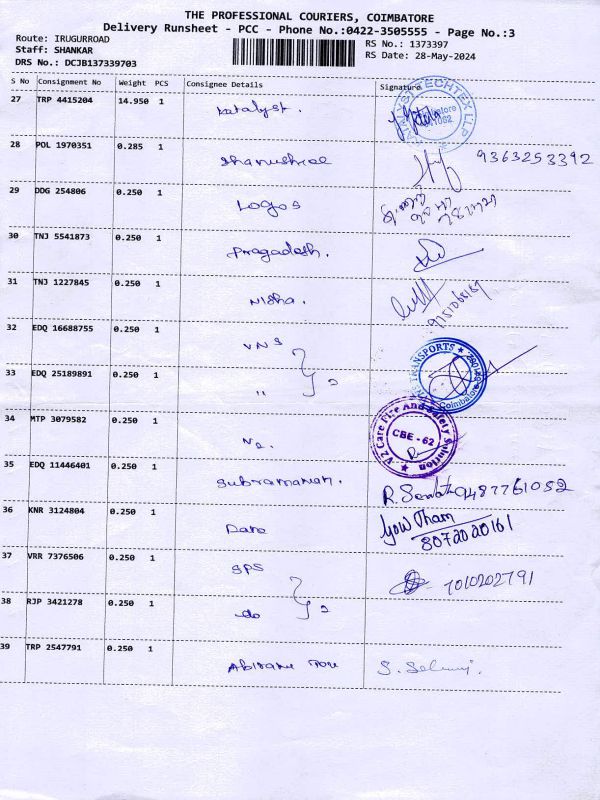 THE PROFESSIONAL COURIERS, COIMBATORE
Delivery Runsheet - PCC - Phone No.:0422-3505555 - Page No.:3
Route: IRUGURROAD
RS No.: 1373397
Staff: SHANKAR
RS Date: 28-May-2024
DRS No.: DCJB137339703
S No Consignment No Weight PCS Consignee Details Signature
27 TRP 4415204 14.950 1 Katalyst.
28 POL 1970351 0.285 1 9363253392
29 DDG 254806 0.250 1 Logos
30 TNJ 5541873 0.250 1 Pragadesh.
31 TNJ 1227845 0.250 1 Nisha. 9751068169
32 EDQ 16688755 0.250 1 VNS
TRANSPORTS
Coimbatore
33 EDQ 25189891 0.250 1 "
34 MTP 3079582 0.250 1 V2 Care Fire And Safety Solution
CBE - 62
35 EDQ 11446401 0.250 1 Subramanian. 9487761052
36 KNR 3124804 0.250 1 8072020161
37 VRR 7376506 0.250 1 SPS - 7010202791
38 RJP 3421278 0.250 1 do } 2
39 TRP 2547791 0.250 1 S. Selvi.